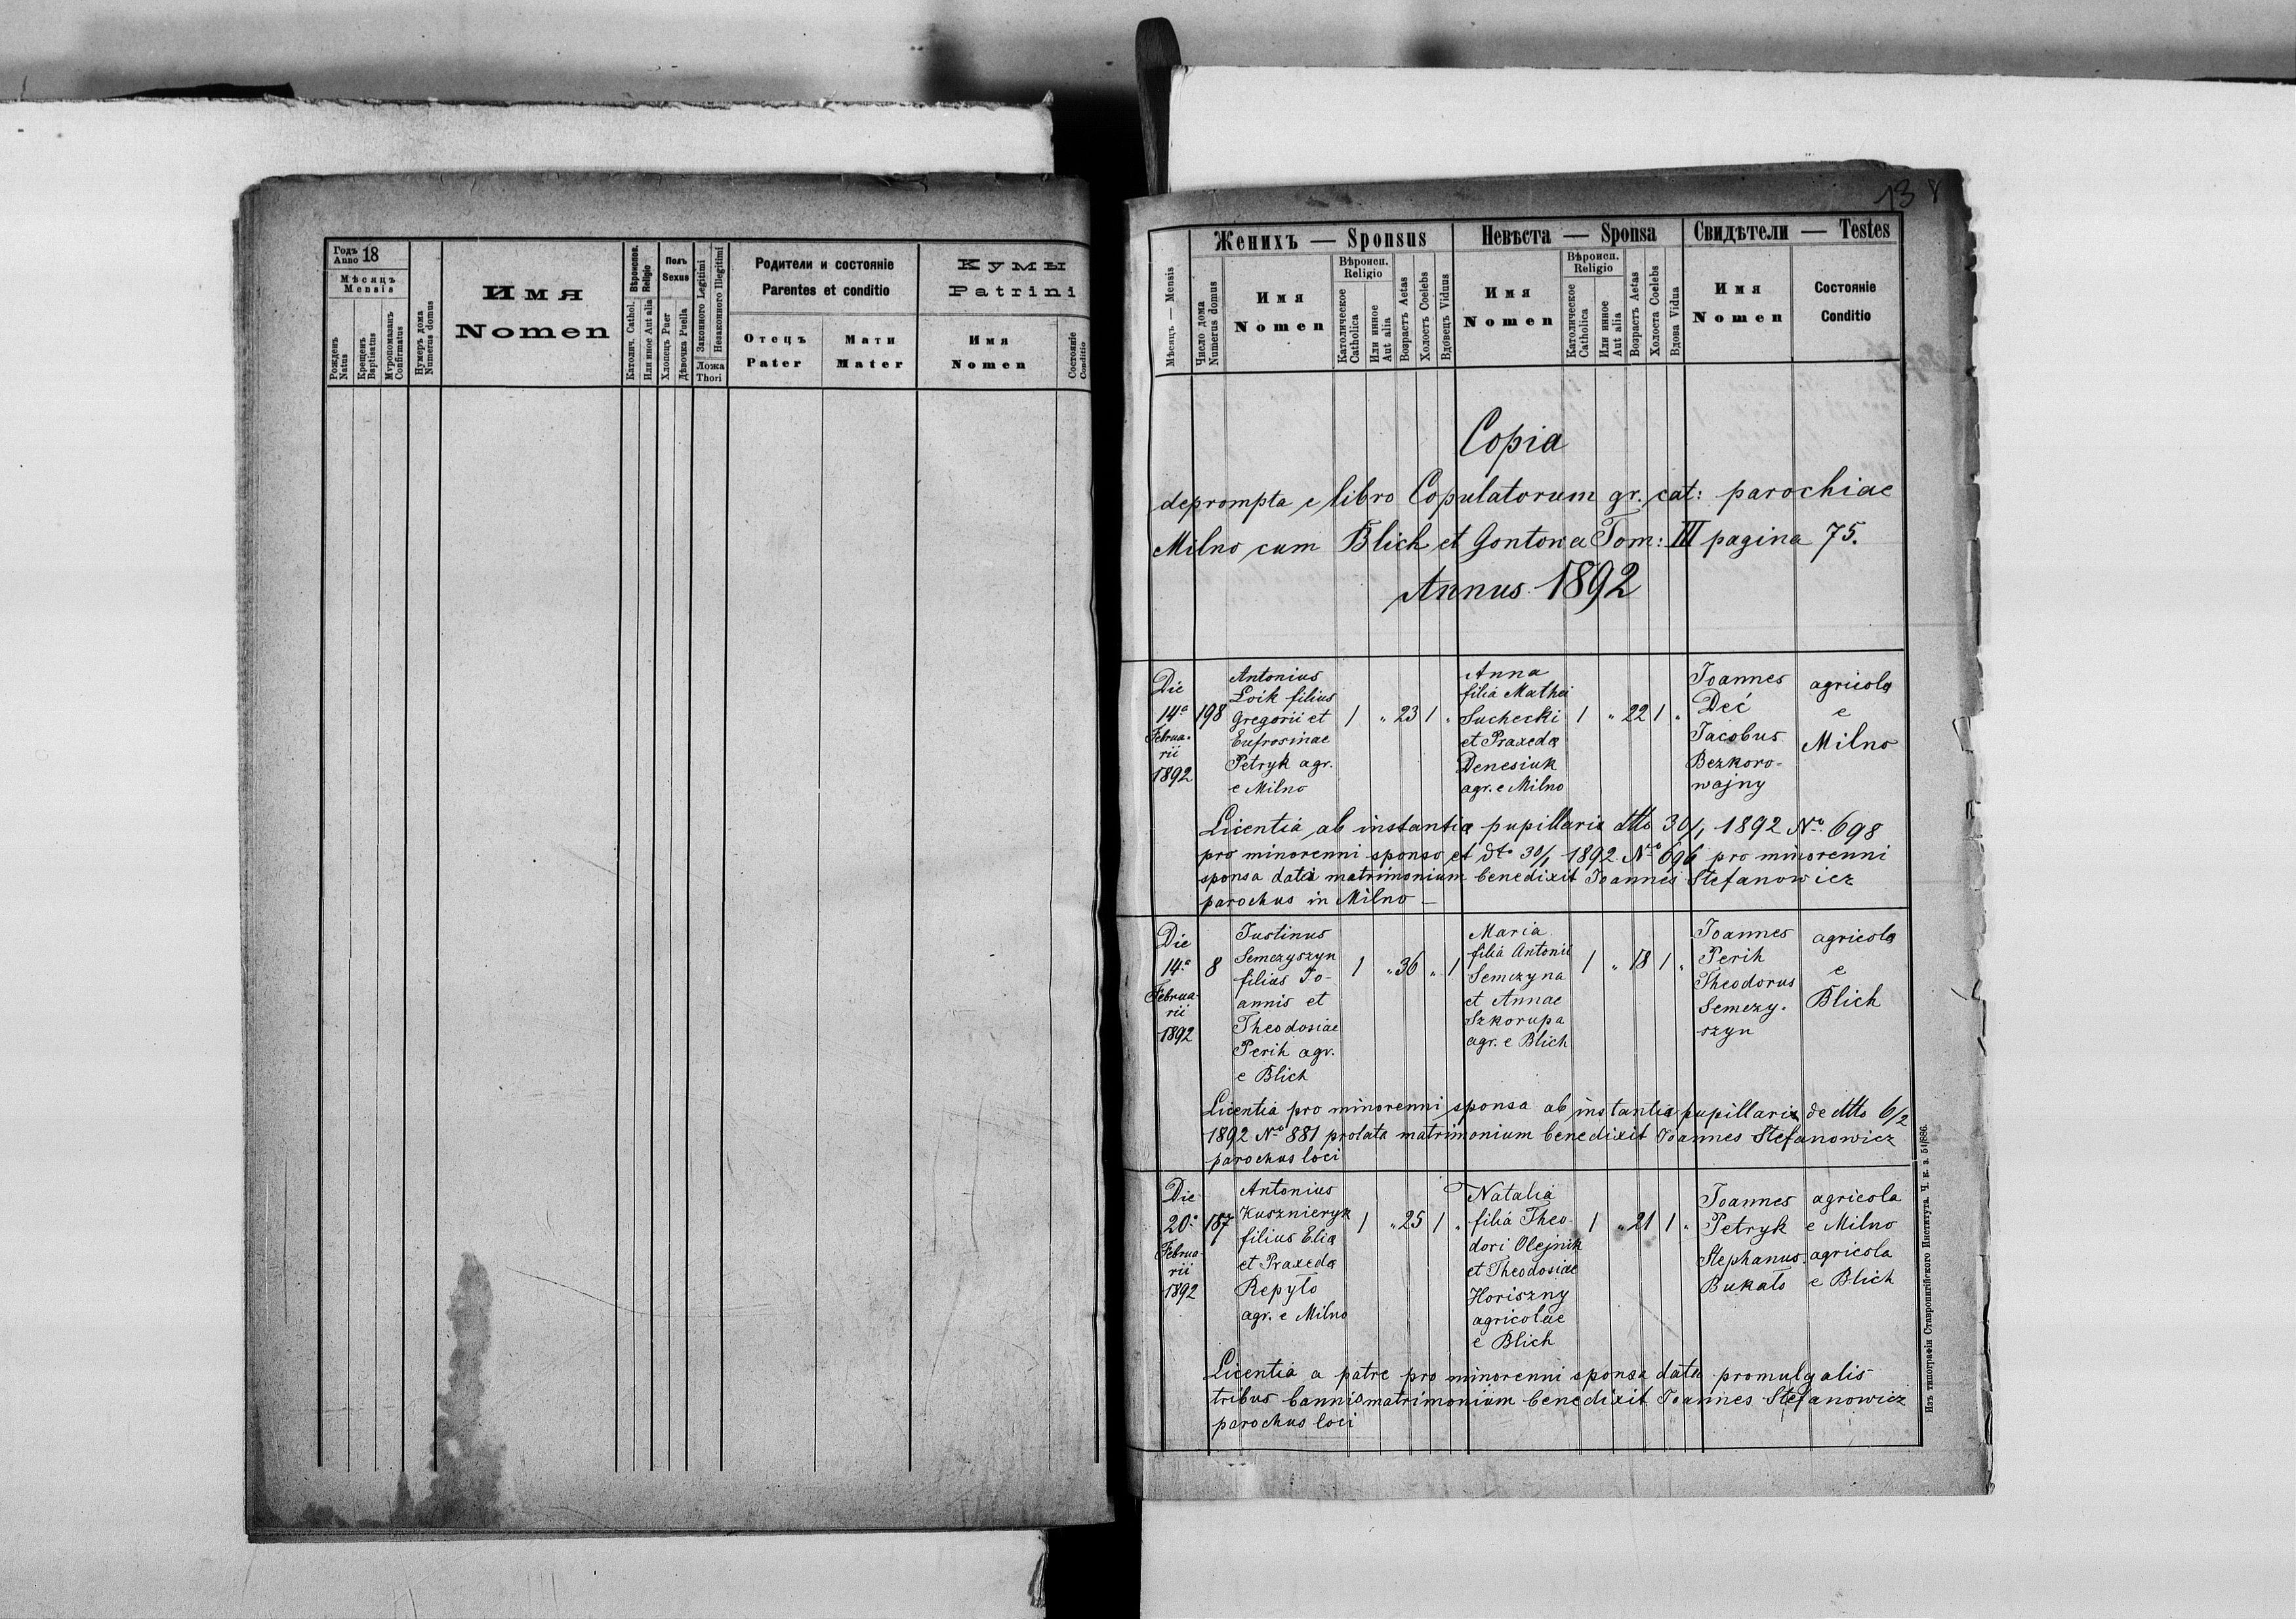 Годъ Anno 18
Мѣсяцъ
Mensis
Рожденъ Natus
Крещенъ Baptisatus
Муропомазанъ Confirmatus
Нумеръ дома Numerus domus
Имя
Nomen
Вѣроиспов. Religio
Католич. Cathol.
Или иное Aut alia
Полъ
Sexus
Хлопецъ Puer
Дѣвочка Puella
Законного Legitimi
Незаконного Illegitimi
Ложа
Thori
Родители и состояніе
Parentes et conditio
Отецъ
Pater
Мати
Mater
Кумы
Patrini
Имя
Nomen
Состояніе
Conditio
13
Мѣсяцъ — Mensis
Женихъ — Sponsus
Число дома Numerus domus
Имя
Nomen
Вѣроисп.
Religio
Католическое Catholica
Или инное Aut alia
Возрастъ Aetas
Холостъ Coelebs
Вдовецъ Viduus
Невѣста — Sponsa
Имя
Nomen
Вѣроисп.
Religio
Католическое Catholica
Или инное Aut alia
Возрастъ Aetas
Холоста Coelebs
Вдова Vidua
Свидѣтели — Testes
Имя
Nomen
Состояніе
Conditio
Copia
deprompta e libro Copulatorum gr. cat: parochiae
Milno cum Blich et Gontowa Tom: III pagina 75.
Annus 1892
Die
14ª
Februa-
rii
1892
198
Antonius
Loik filius
Gregorii et
Eufrosinae
Petryk agr.
e Milno
1 " 23 1 "
Anna
filia Mathei
Suchecki
et Praxeda
Denesiuk
agr. e Milno
1 " 22 1 "
Joannes
Deć
Jacobus
Bezkoro-
wajny
agricola
e
Milno
Licentia ab instantia pupillari dtto 30/1 1892 Nº 698
pro minorenni sponso et dto 30/1 1892 Nº 696 pro minorenni
sponsa data matrimonium benedixit Joannes Stefanowicz
parochus in Milno —
Die
14ª
Februa-
rii
1892
8
Justinus
Semczyszyn
filius Jo-
annis et
Theodosiae
Perih agr.
e Blich
1 " 36 " 1
Maria
filia Antonii
Semczyna
et Annae
Szkorupa
agr. e Blich
1 " 18 1 "
Joannes
Perih
Theodorus
Semczy-
szyn
agricola
e
Blich
Licentia pro minorenni sponsa ab instantia pupillari de dtto 6/2
1892 Nº 881 prolata matrimonium benedixit Joannes Stefanowicz
parochus loci
Die
20ª
Februa-
rii
1892
187
Antonius
Kusznieryk
filius Elia
et Praxeda
Repyło
agr. e Milno
1 " 25 1 "
Natalia
filia Theo-
dori Olejnik
et Theodosiae
Horiszny
agricolae
e Blich
1 " 21 1 "
Joannes
Petryk
Stephanus
Bukało
agricola
e Milno
agricola
e Blich
Licentia a patre pro minorenni sponsa data promulgatis
tribus bannis matrimonium benedixit Joannes Stefanowicz
parochus loci
Изъ типографіи Ставропигійского Института. Ч. к. з. 51/886.